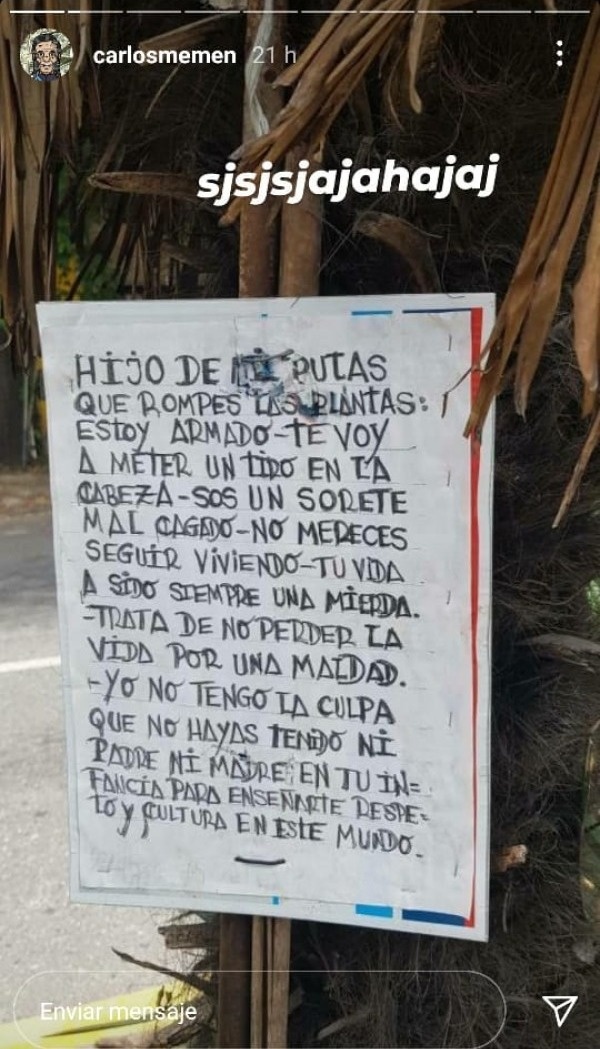 carlosmemen 21 h
sjsjsjajahajaj
HIJO DE MIL PUTAS
QUE ROMPES LAS PLANTAS:
ESTOY ARMADO-TE VOY
A METER UN TIRO EN LA
CABEZA-SOS UN SORETE
MAL CAGADO-NO MERECES
SEGUIR VIVIENDO-TU VIDA
A SIDO SIEMPRE UNA MIERDA.
-TRATA DE NO PERDER LA
VIDA POR UNA MALDAD.
-YO NO TENGO LA CULPA
QUE NO HAYAS TENIDO NI
PADRE NI MADRE EN TU IN=
FANCIA PARA ENSEÑARTE RESPE=
TO Y CULTURA EN ESTE MUNDO.
Enviar mensaje